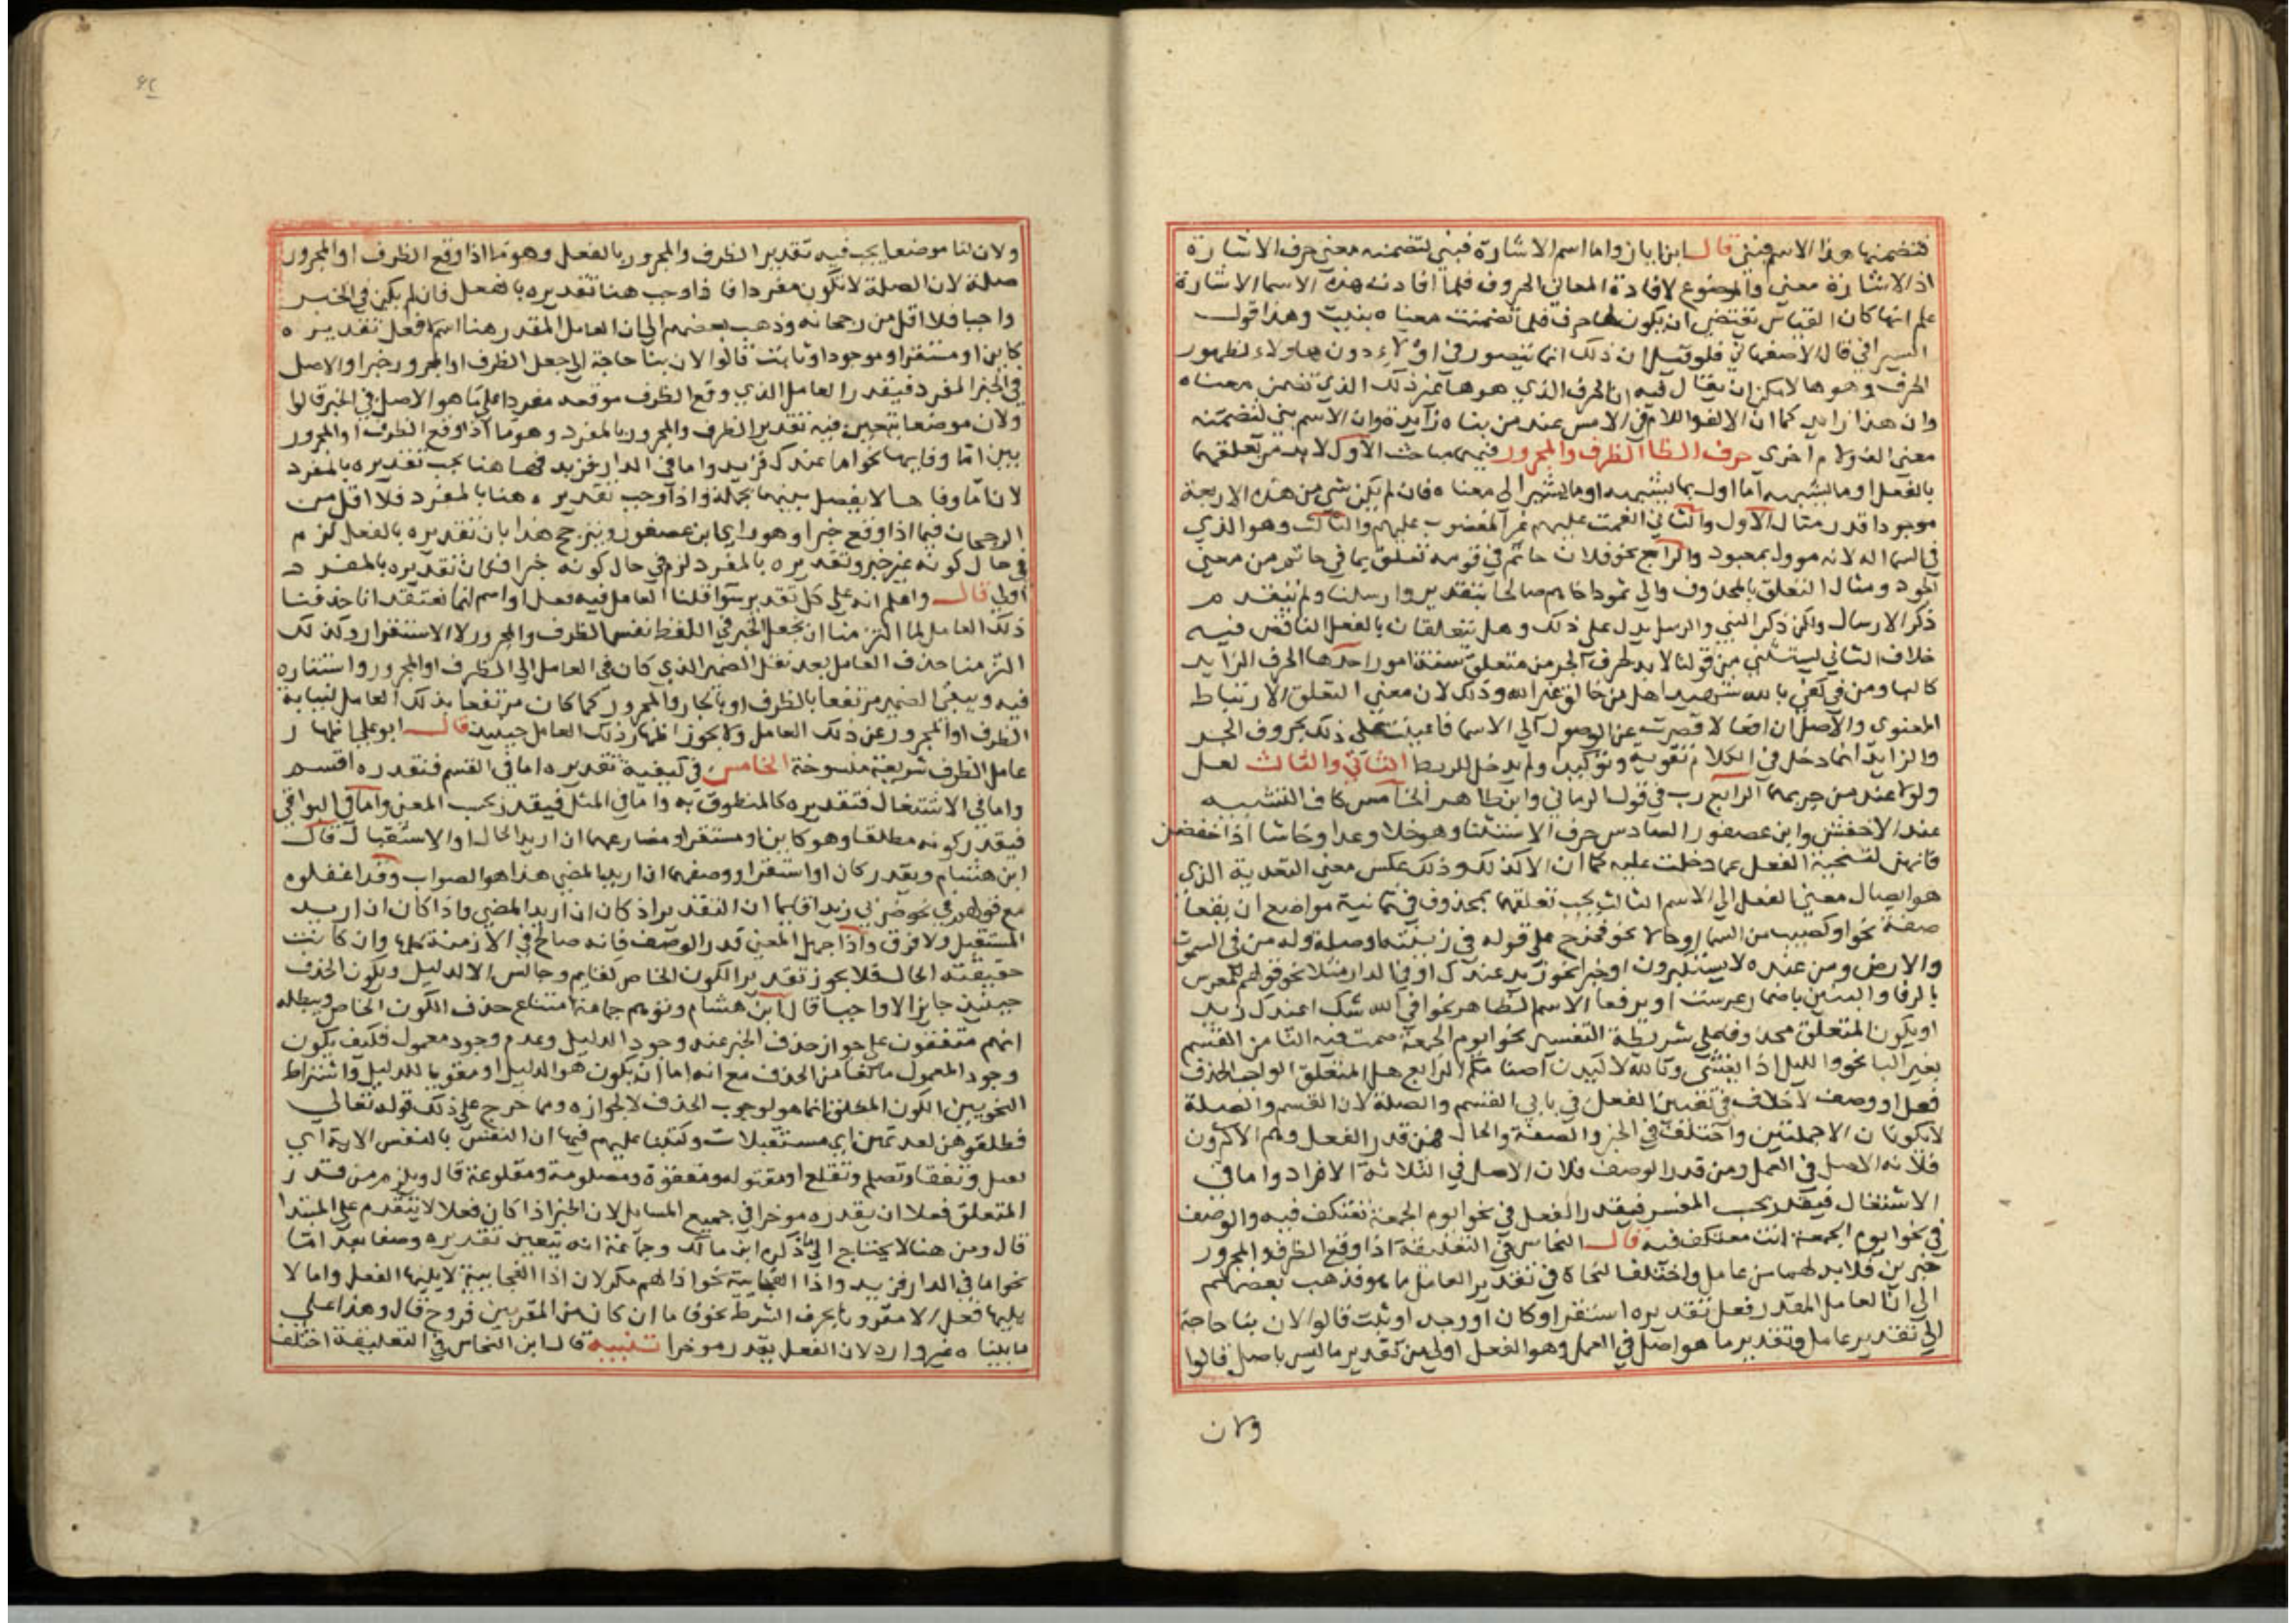 فتضمنها هذا الاسم فبني قال ابن اياز واما اسم الاشارة فبني لتضمنه معنى حرف الاشارة
اذ الاشارة معنى والموضوع لافادة المعاني الحروف فلما افادت هذه الاسما الاشارة
علم انها كان القياس تقتضي ان يكون لها حرف فلما تضمنت معناه بنيت وهذا قول
السيرافي قال الاصفهاني فلو قيل ان ذلك انما يتصور في اولاء دون هاولاء لظهور
الحرف وهو ها لامكن ان يقال فيه ان الحرف الذي هو ها غير ذلك الذي تضمن معناه
وان هذا زايد كما ان الالف واللام في الامس عند من بناه زايدة وان الاسم بني لتضمنه
معنى الف ولام اخرى حرف الظا الظرف والمجرور فيهما مباحث الاول لابد من تعلقهما
بالفعل او ما يشبهه او ما اول بما يشبهه او ما يشير الى معناه فان لم يكن شي من هذه الاربعة
موجودا قدر مثال الاول والثاني انعمت عليهم غير المغضوب عليهم والثالث وهو الذي
في السما اله لانه موول بمعبود والرابع نحو فلان حاتم في قومه تعلق بما في حاتم من معنى
الجود ومثال التعلق بالمحذوف والى ثمود اخاهم صالحا بتقدير وارسلنا ولم يتقدم
ذكر الارسال ولكن ذكر النبي والمرسل يدل على ذلك وهل يتعلقان بالفعل الناقص فيه
خلاف الثاني يستثنى من قولنا لابد لحرف الجر من متعلق ستة امور احدها الحرف الزايد
كالبا ومن في كفى بالله شهيدا هل من خالق غير الله وذلك لان معنى التعلق الارتباط
المعنوي والاصل ان افعالا قصرت عن الوصول الى الاسما فاعينت على ذلك بحروف الجر
والزايد انما دخل في الكلام تقوية وتوكيدا ولم يدخل للربط الثاني والثالث لعل
ولولا عند من جربهما الرابع رب في قول الرماني وابن طاهر الخامس كاف التشبيه
عند الاخفش وابن عصفور السادس حرف الاستثنا وهو خلا وعدا وحاشا اذا خفضن
فانهن لتنحية الفعل عما دخلت عليه كما ان الا كذلك وذلك عكس معنى التعدية الذي
هو ايصال معنى الفعل الى الاسم الثالث يجب تعلقهما بمحذوف في ثمانية مواضع ان يقعا
صفة نحو او كصيب من السما او حالا نحو فخرج على قومه في زينته او صلة وله من في السموت
والارض ومن عنده لا يستكبرون او خبرا نحو زيد عندك او في الدار او مثلا نحو قولهم للمعرس
بالرفا والبنين باضمار عرست او يرفعا الاسم الظاهر نحو افي الله شك اعندك زيد
او يكون المتعلق محذوفا على شريطة التفسير نحو ايوم الجمعة صمت فيه الثامن القسم
بغير البا نحو والليل اذا يغشى وتالله لاكيدن اصنامكم الرابع هل المتعلق الواجب الحذف
فعل او وصف لا خلاف في تعين الفعل في بابي القسم والصلة لان القسم والصلة
لا يكونان الا جملتين واختلف في الخبر والصفة والحال فمن قدر الفعل وهم الاكثرون
فلانه الاصل في العمل ومن قدر الوصف فلان الاصل في الثلاثة الافراد واما في
الاشتغال فيقدر بحسب المفسر فيقدر الفعل في نحو ايوم الجمعة نعتكف فيه والوصف
في نحو ايوم الجمعة انت معتكف فيه قال النحاس في التعليقة اذا وقع الظرف والمجرور
خبرين فلابد لهما من عامل واختلف النحاة في تقدير العامل ما هو فذهب بعضهم
الى ان العامل المقدر فعل تقديره استقر او كان او وجد او ثبت قالوا لان بنا حاجة
الى تقدير عامل وتقدير ما هو اصل في العمل وهو الفعل اولى من تقدير ما ليس باصل قالوا
ولان
ولان لنا موضعا يجب فيه تقدير الظرف والمجرور بالفعل وهو ما اذا وقع الظرف او المجرور
صلة لان الصلة لا تكون مفردا فاذا وجب هنا تقديره بالفعل فان لم يكن في الخبر
واجبا فلا اقل من رجحانه وذهب بعضهم الى ان العامل المقدر هنا اسم فعل تقديره
كاين او مستقر او موجود او ثابت قالوا لان بنا حاجة الى جعل الظرف او المجرور خبرا والاصل
في الخبر المفرد فيقدر العامل الذي وقع الظرف موقعه مفردا على ما هو الاصل في الخبر قالوا
ولان موضعا يتعين فيه تقدير الظرف والمجرور بالمفرد وهو ما اذا وقع الظرف او المجرور
بين اما وفايها نحو اما عندك فزيد واما في الدار فزيد فها هنا يجب تقديره بالمفرد
لان اما وفاها لا يفصل بينهما بجملة واذا وجب تقديره هنا بالمفرد فلا اقل من
الرجحان فيما اذا وقع خبرا وهو راي ابن عصفور ويترجح هذا بان تقديره بالفعل لزم
في حال كونه غير خبر وتقديره بالمفرد لزم في حال كونه خبرا فكان تقديره بالمفرد
اولى قال واعلم انه على كل تقدير سوا قلنا العامل فيه فعل او اسم انما نعتقد انا حذفنا
ذلك العامل لما التزمنا ان نجعل الخبر في اللفظ نفس الظرف والمجرور لا الاستقرار وكذلك
التزمنا حذف العامل بعد نقل الضمير الذي كان في العامل الى الظرف او المجرور واستتاره
فيه ويبقى الضمير مرتفعا بالظرف او بالجار والمجرور كما كان مرتفعا بذلك العامل لنيابة
الظرف او المجرور عن ذلك العامل ولا يجوز اظهار ذلك العامل حينيذ قال ابو علي اظهار
عامل الظرف شريعة منسوخة الخامس في كيفية تقديره اما في القسم فتقدره اقسم
واما في الاشتغال فتقديره كالمنطوق به واما في المثل فيقدر بحسب المعنى واما في البواقي
فيقدر كونه مطلقا وهو كاين او مستقر او مضارعهما ان اريد الحال او الاستقبال قال
ابن هشام ويقدر كان او استقر او وصفهما ان اريد المضي هذا هو الصواب وقد اغفلوه
مع قولهم في نحو ضربي زيدا قايما ان التقدير اذ كان ان اريد المضي واذا كان ان اريد
المستقبل ولا فرق واذا جهل المعنى قدر الوصف فانه صالح في الازمنة كلها وان كانت
حقيقته الحال فلا يجوز تقدير الكون الخاص كقايم وجالس الا لدليل ويكون الحذف
حينيذ جايزا لا واجبا قال ابن هشام وتوهم جماعة امتناع حذف الكون الخاص ويبطله
انهم متفقون على جواز حذف الخبر عند وجود الدليل وعدم وجود معمول فكيف يكون
وجود المعمول مانعا من الحذف مع انه اما ان يكون هو الدليل او مقويا للدليل واشتراط
النحويين الكون المطلق انما هو لوجوب الحذف لا لجوازه ومما خرج على ذلك قوله تعالى
فطلقوهن لعدتهن اي مستقبلات وكتبنا عليهم فيها ان النفس بالنفس الاية اي
تقتل وتفقا وتصلم وتقلع او مقتوله ومفقوة ومصلومة ومقلوعة قال ويلزم من قدر
المتعلق فعلا ان يقدره موخرا في جميع المسايل لان الخبر اذا كان فعلا لا يتقدم على المبتدا
قال ومن هنا لا يحتاج الى ما ذكره ابن مالك وجماعة انه يتعين تقديره وصفا بعد اما
نحو اما في الدار فزيد واذا الفجايية نحو اذا لهم مكر لان اذا الفجايية لا يليها الفعل واما لا
يليها فعل الا مقرونا بحرف الشرط نحو فاما ان كان من المقربين فروح قال وهذا على
ما بيناه غير وارد لان الفعل يقدر موخرا تنبيه قال ابن النحاس في التعليقة اختلف